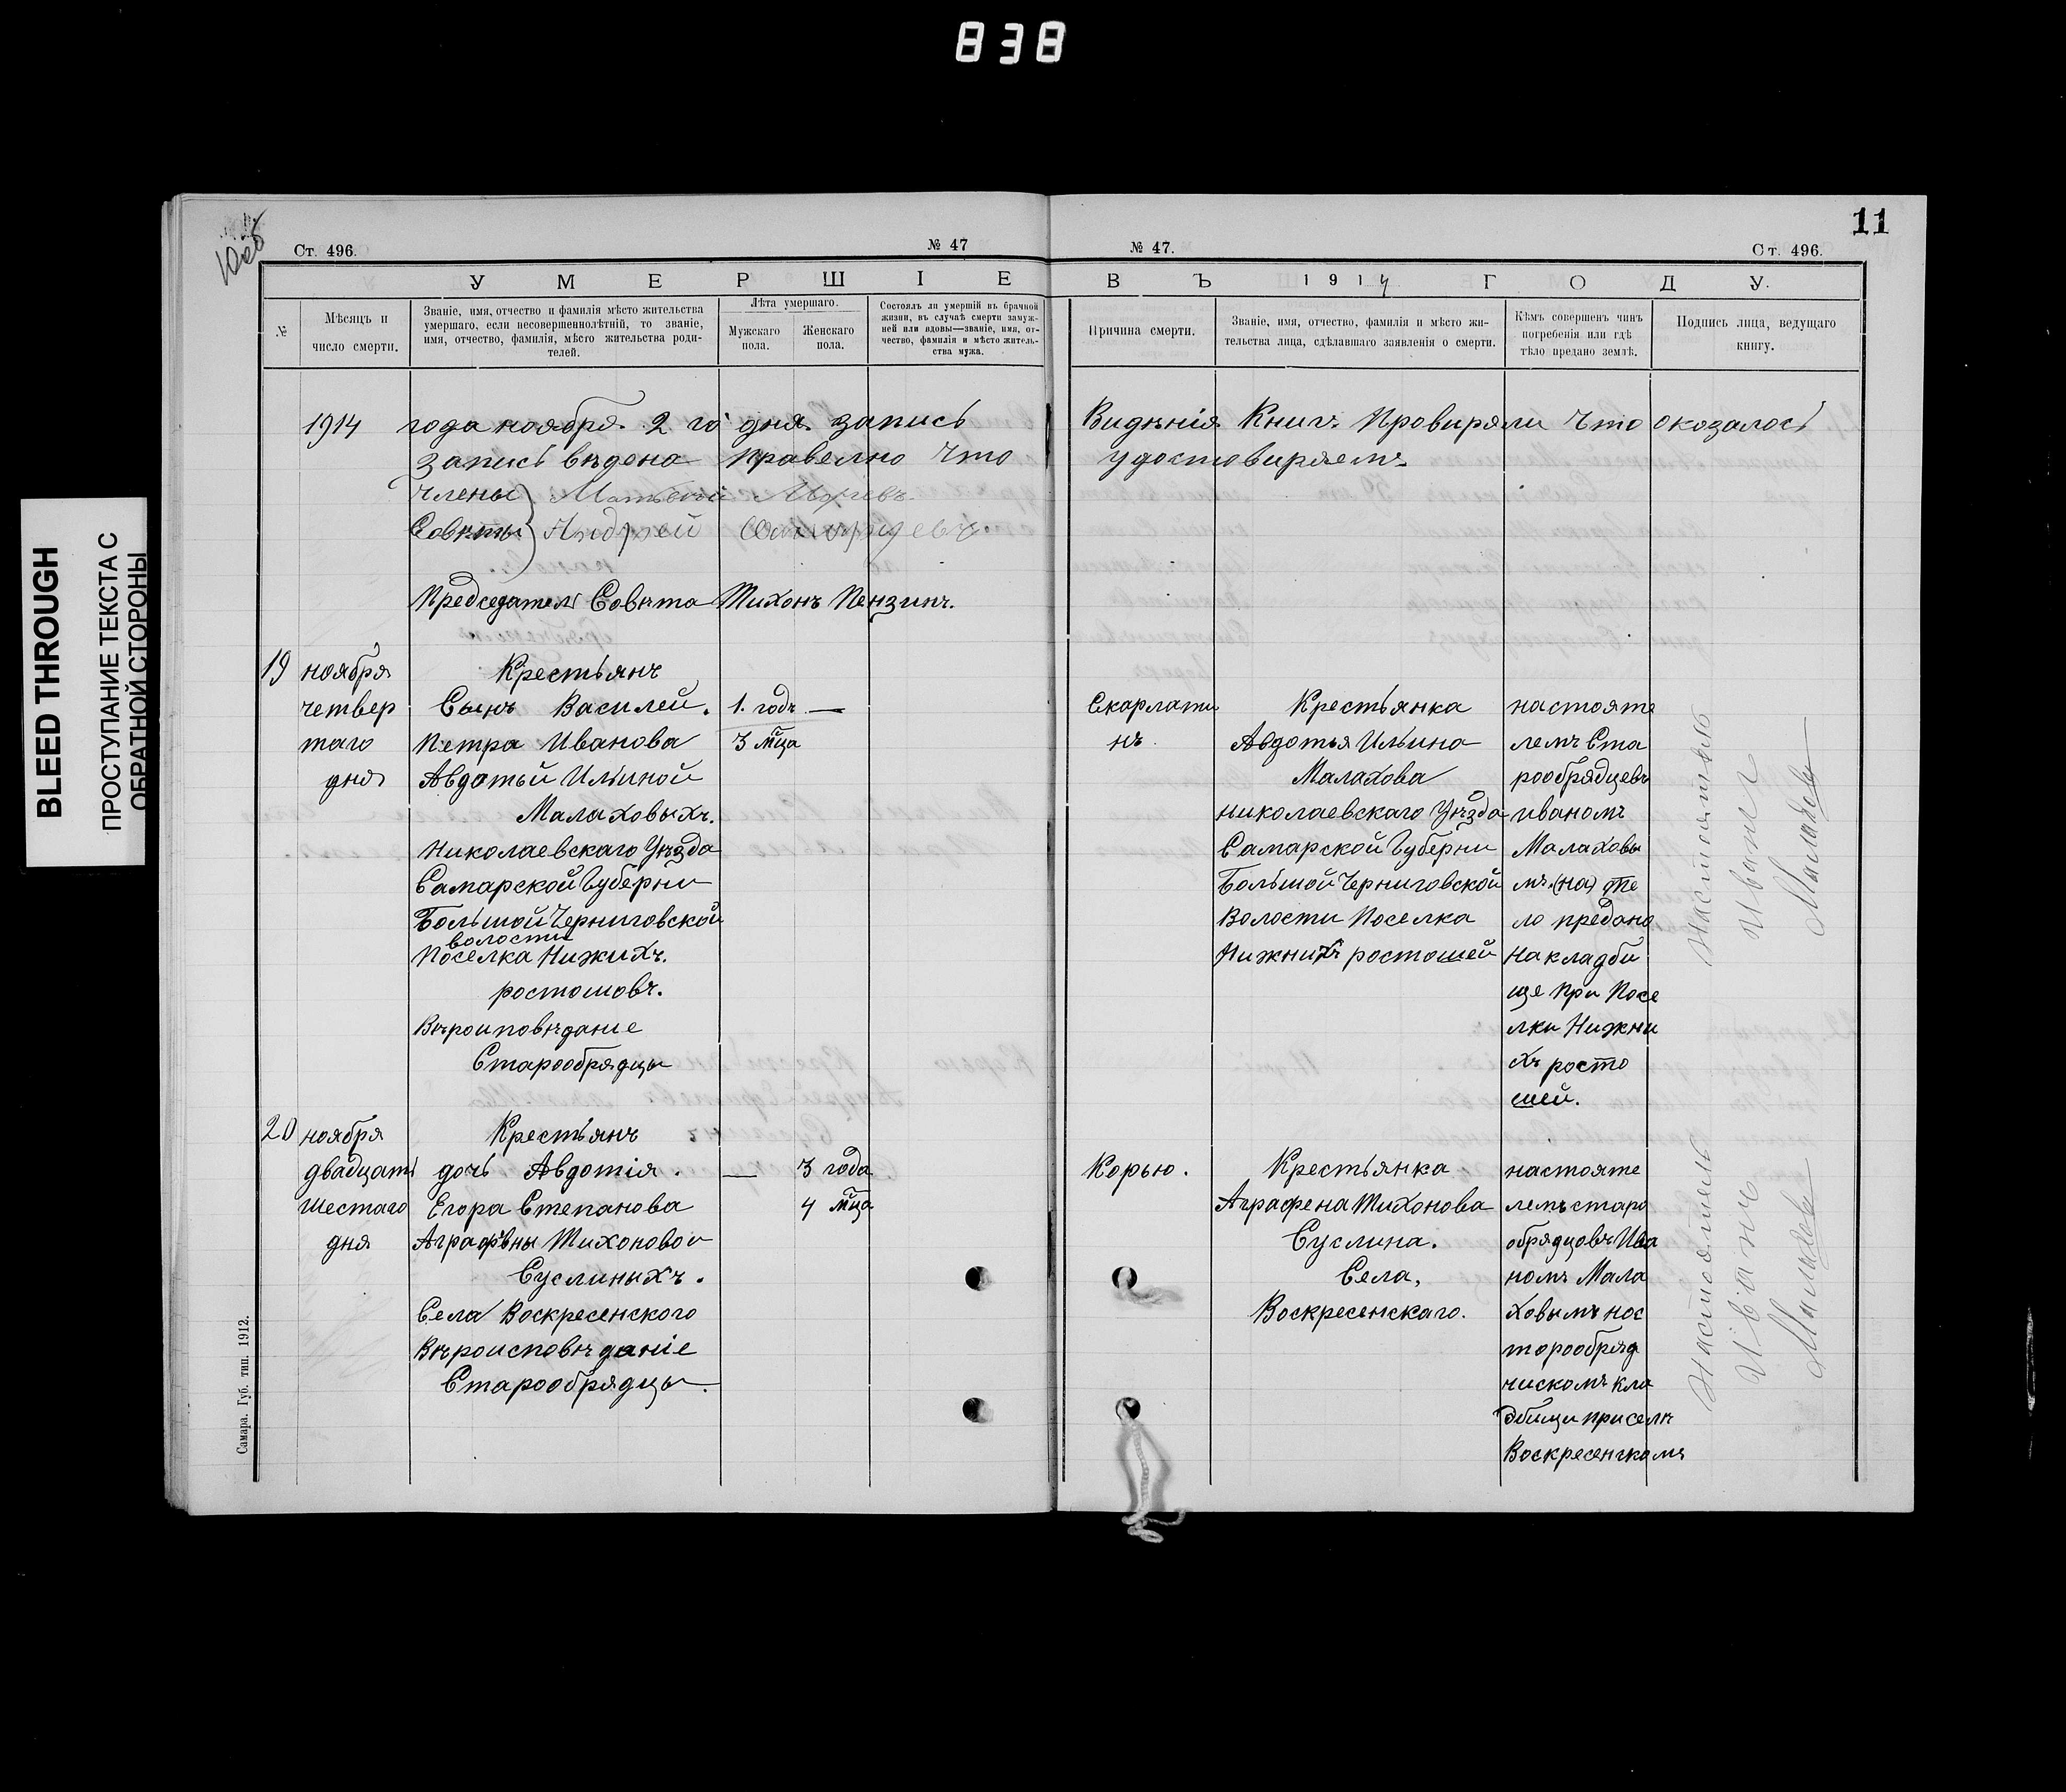 838
BLEED THROUGH
ПРОСТУПАНИЕ ТЕКСТА С
ОБРАТНОЙ СТОРОНЫ
11
Ст. 496.
№ 47
№ 47.
Ст. 496.
УМЕРШІЕ
ВЪ 1914 ГОДУ.
№
Мѣсяцъ и
число смерти.
Званіе, имя, отчество и фамилія мѣсто жительства
умершаго, если несовершеннолѣтній, то званіе,
имя, отчество, фамилія, мѣсто жительства роди-
телей.
Лѣта умершаго.
Мужскаго
пола.
Женскаго
пола.
Состоялъ ли умершій въ брачной
жизни, въ случаѣ смерти замуж-
ней или вдовы—званіе, имя, от-
чество, фамилія и мѣсто житель-
ства мужа.
Причина смерти.
Званіе, имя, отчество, фамилія и мѣсто жи-
тельства лица, сдѣлавшаго заявленія о смерти.
Кѣмъ совершенъ чинъ
погребенія или гдѣ
тѣло предано землѣ.
Подпись лица, ведущаго
книгу.
1914 года ноября 2 го дня запись
запись вѣдена правелно что
Видѣнія Книгъ Провиряли Что окозалось
удостовиряемъ
Члены
Совѣта
Андрей
Председатель Совѣта Тихонъ Пензинъ.
19
ноября
четвер
таго
дня
Крестьянъ
Сынъ Василей.
Петра Иванова
Авдотьи Ильиной
Малаховыхъ.
Николаевскаго Уѣзда
Самарской Губерни
Большой Черниговской
волости
Поселка Нижихъ.
ростошовъ.
Вѣроиповѣдание
Старообрядцы
1. годъ —
3 мца
Скарлати
нъ
Крестьянка
Авдотья Ильина
Малахова
николаевскаго Уѣзда
Самарской Губерни
Большой Черниговской
Волости Поселка
Нижнихъ ростошей
настояте
лемъ Ста
рообрядцевъ
иваномъ
Малаховы
мъ. (на) те
ло предано
на кладби
ще при Посе
лки Нижни
хъ росто
шей.
Настоятель
Иванъ
Малахов
20
ноября
двадцать
шестаго
дня
Крестьянъ
дочь Авдотія.
Егора Степанова
Аграфѣны Тихоновой
Суслиныхъ.
Села Воскресенского
Вѣроисповѣданіе
Старообрядцы.
—
3 года
4 мца
Корью.
Крестьянка
Аграфена Тихонова
Суслина.
Села,
Воскресенскаго.
настояте
лемъ старо
обрядцовъ Ива
номъ Мала
ховымъ нос
торообряд
чискомъ кла
дбищи при селѣ
Воскресенскомъ
Настоятель
Иванъ
Малахов
Самара. Губ. тип. 1912.